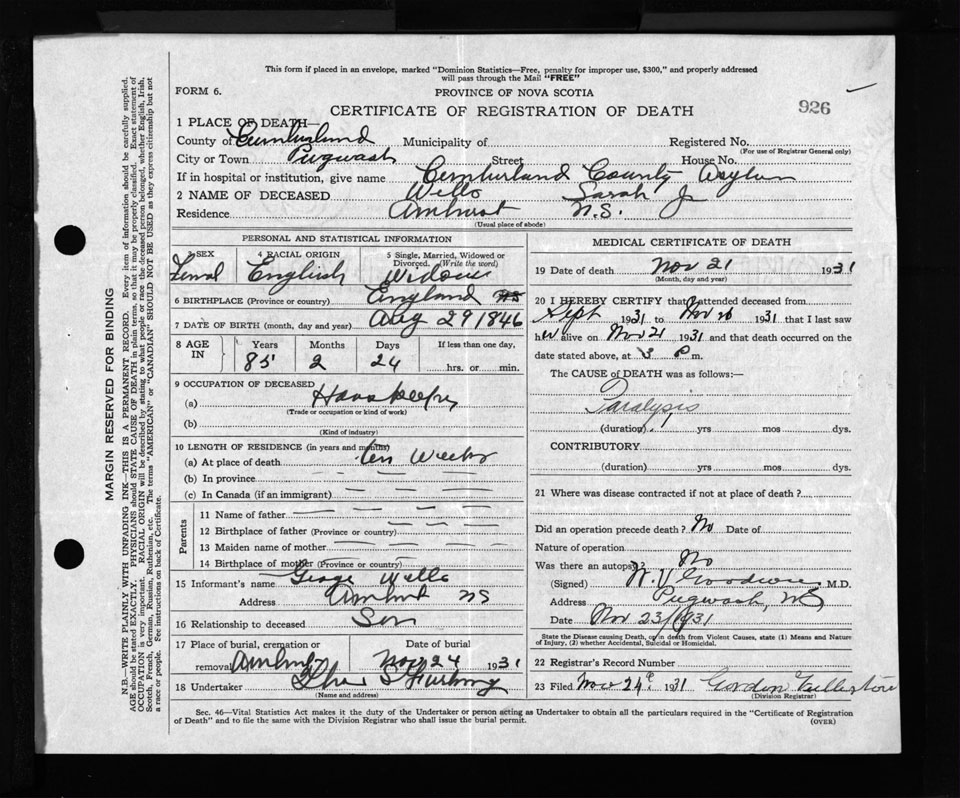 This form if placed in an envelope, marked "Dominion Statistics—Free, penalty for improper use, $300," and properly addressed
will pass through the Mail "FREE"
FORM 6.
PROVINCE OF NOVA SCOTIA
926
CERTIFICATE OF REGISTRATION OF DEATH
1 PLACE OF DEATH—
County of Cumberland Municipality of Registered No.
(For use of Registrar General only)
City or Town Pugwash Street House No.
If in hospital or institution, give name Cumberland County Asylum
2 NAME OF DECEASED Wells Sarah J
Residence Amherst N.S.
(Usual place of abode)
PERSONAL AND STATISTICAL INFORMATION
3 SEX 4 RACIAL ORIGIN 5 Single, Married, Widowed or
Divorced. (Write the word)
Femal English Widow
6 BIRTHPLACE (Province or country) England NS
7 DATE OF BIRTH (month, day and year) Aug 29 1846
8 AGE IN Years Months Days If less than one day,
85 2 24 hrs. or min.
9 OCCUPATION OF DECEASED
(a) Housekeeper
(Trade or occupation or kind of work)
(b)
(Kind of industry)
10 LENGTH OF RESIDENCE (in years and months)
(a) At place of death ten Weeks
(b) In province
(c) In Canada (if an immigrant)
Parents
11 Name of father
12 Birthplace of father (Province or country)
13 Maiden name of mother
14 Birthplace of mother (Province or country)
15 Informant's name George Wells
Address Amherst NS
16 Relationship to deceased Son
17 Place of burial, cremation or Date of burial
removal Amherst Nov 24 1931
18 Undertaker
(Name and address)
MEDICAL CERTIFICATE OF DEATH
19 Date of death Nov 21 1931
(Month, day and year)
20 I HEREBY CERTIFY that I attended deceased from
Sept 1931 to Nov 1931 that I last saw
her alive on Nov 21 1931 and that death occurred on the
date stated above, at 3 P m.
The CAUSE of DEATH was as follows:—
Paralysis
(duration) yrs mos dys.
CONTRIBUTORY
(duration) yrs mos dys.
21 Where was disease contracted if not at place of death?
Did an operation precede death? No Date of
Nature of operation
Was there an autopsy? No
(Signed) M.D.
Address Pugwash, NS
Date Nov 23/1931
State the Disease causing Death, or in death from Violent Causes, state (1) Means and Nature
of Injury, (2) whether Accidental, Suicidal or Homicidal.
22 Registrar's Record Number
23 Filed Nov 24 1931 Gordon
(Division Registrar)
Sec. 46—Vital Statistics Act makes it the duty of the Undertaker or person acting as Undertaker to obtain all the particulars required in the "Certificate of Registration
of Death" and to file the same with the Division Registrar who shall issue the burial permit.
(OVER)
MARGIN RESERVED FOR BINDING
N.B.—WRITE PLAINLY WITH UNFADING INK—THIS IS A PERMANENT RECORD. Every item of information should be carefully supplied.
AGE should be stated EXACTLY. PHYSICIANS should STATE CAUSE OF DEATH in plain terms, so that it may be properly classified. Exact statement of
OCCUPATION is very important. RACIAL ORIGIN will be described by stating to what people or race the deceased person belonged, whether English, Irish,
Scotch, French, German, Russian, Ruthenian, etc. The terms "AMERICAN" or "CANADIAN" SHOULD NOT BE USED as they express citizenship but not
a race or people. See instructions on back of Certificate.